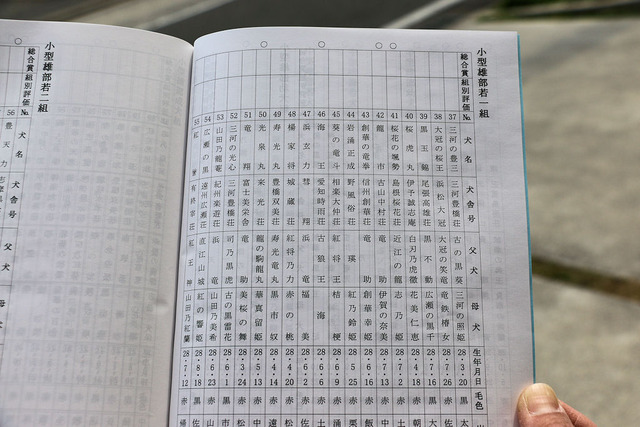 小型雄部若一組
総合賞 組別評価 № 犬名 犬舎号 父犬 母犬 生年月日 毛色
37 三河の豊三 三河豊橋荘 古の黒葵 三河の照姫 28・3・20 黒
38 大冠の桜王 浜松大冠 大冠の笑竜 竜鉄椿女 28・7・26 黒
39 黒玉錦 尾張高雄荘 黒不動 広瀬の黒千 28・7・16 黒
40 桜虎丸 伊予誠志庵 白刃乃虎徹 花美仁恵 28・4・18 赤
41 桜花の颯勢 島根桜花荘 近江の龍 志乃姫 28・7・2 赤
42 龍市 古山中村荘 竜助 伊賀の奈美 28・7・13 赤
43 創華の竜拳 信州創華荘 竜助 創華幸姫 28・6・16 赤
44 岩涌正成 野風俗荘 瑛 紅乃鈴姫 28・5・25 赤
45 葵の竜斗 相楽太仲荘 紅将王 桔梗 28・6・9 赤
46 海王 愛知時雨荘 古狼王 海 28・6・2 赤
47 浜玄力 彗翔 浜竜 福美 28・6・6 赤
48 楊家将 城蔵荘 紅将乃力 赤の桃 28・4・20 赤
49 寿光丸 豊橋双美荘 寿光竜丸 黒市奴 28・4・14 赤
50 光泉丸 来光荘 龍の駒龍丸 華真留姫 28・5・13 赤
51 竜翔 富士美栄舎 竜助 美桜の舞 28・3・24 赤
52 三河の光心 三河豊橋荘 司乃黒虎 古の黒雷花 28・6・1 黒
53 山田乃龍菴 紀州楽遊荘 浜竜 山田乃美希 28・6・23 赤
54 広瀬の黒 遠州広瀬荘 直江山城 紅の響姫 28・8・18 黒
55 紅 有終幸荘 紅王神 山田乃紅蘭 28・7・12 赤
小型雄部若二組
総合賞 組別評価 № 犬名 犬舎号 父犬 母犬
56 豊天力